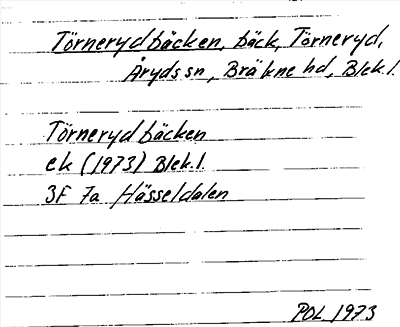 Törnerydbäcken, bäck, Törneryd,
Åryds sn, Bräkne hd, Blek.l.
Törnerydbäcken
ek (1973) Blek.l.
3F 7a Hässeldalen
POL 1973